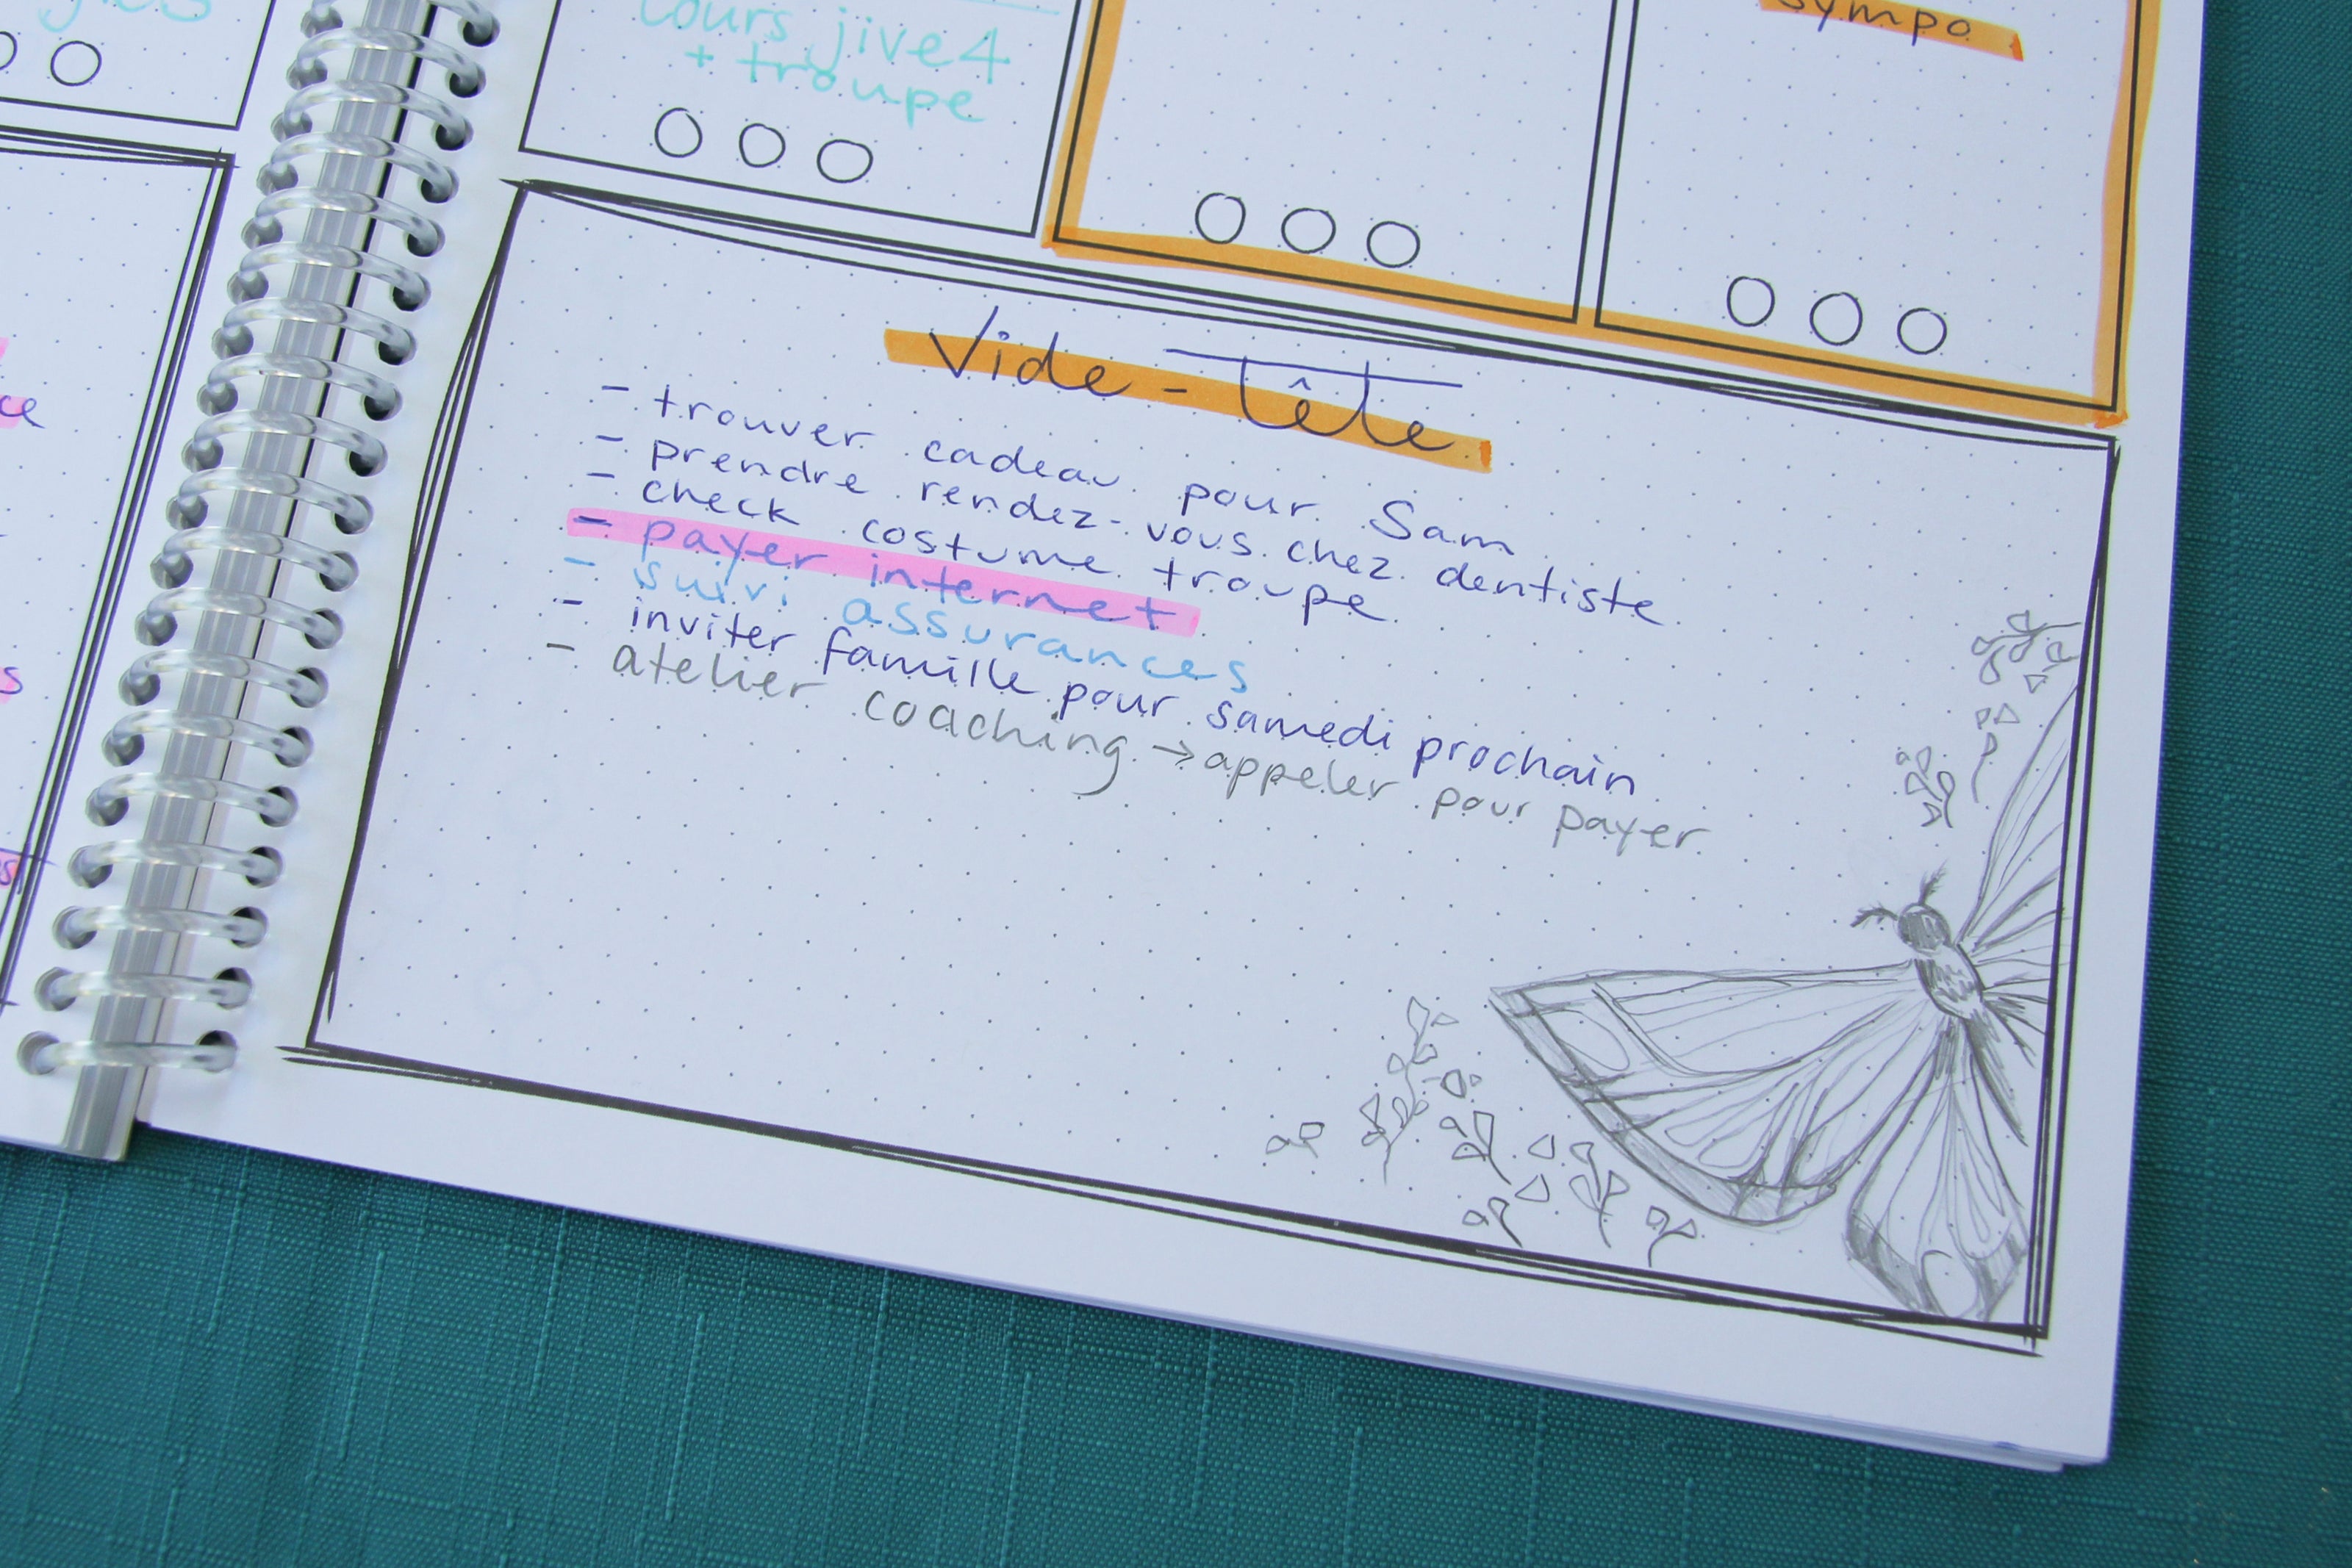 cours jive 4
+ troupe
sympo
Vide-Tête
- trouver cadeau pour Sam
- prendre rendez-vous chez dentiste
- check costume troupe
- payer internet
- suivi assurances
- inviter famille pour samedi prochain
- atelier coaching → appeler pour payer